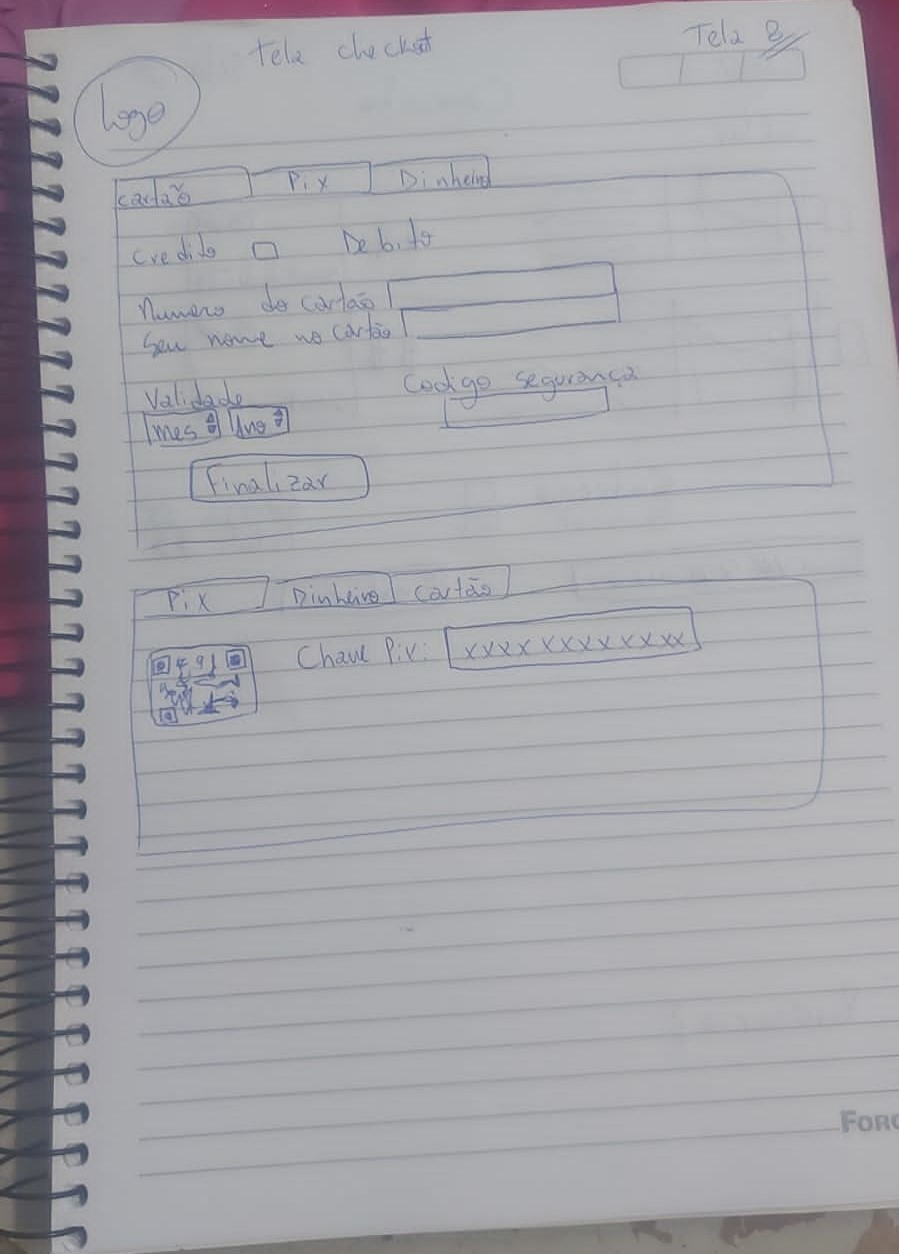 Tela checkout
Tela 8
Logo
cartão Pix Dinheiro
Credito Debito
Numero do cartão
Seu nome no cartão
Validade Codigo segurança
mes Ano
Finalizar
Pix Dinheiro Cartão
Chave Pix: xxxxxxxxxxxxx
FORO